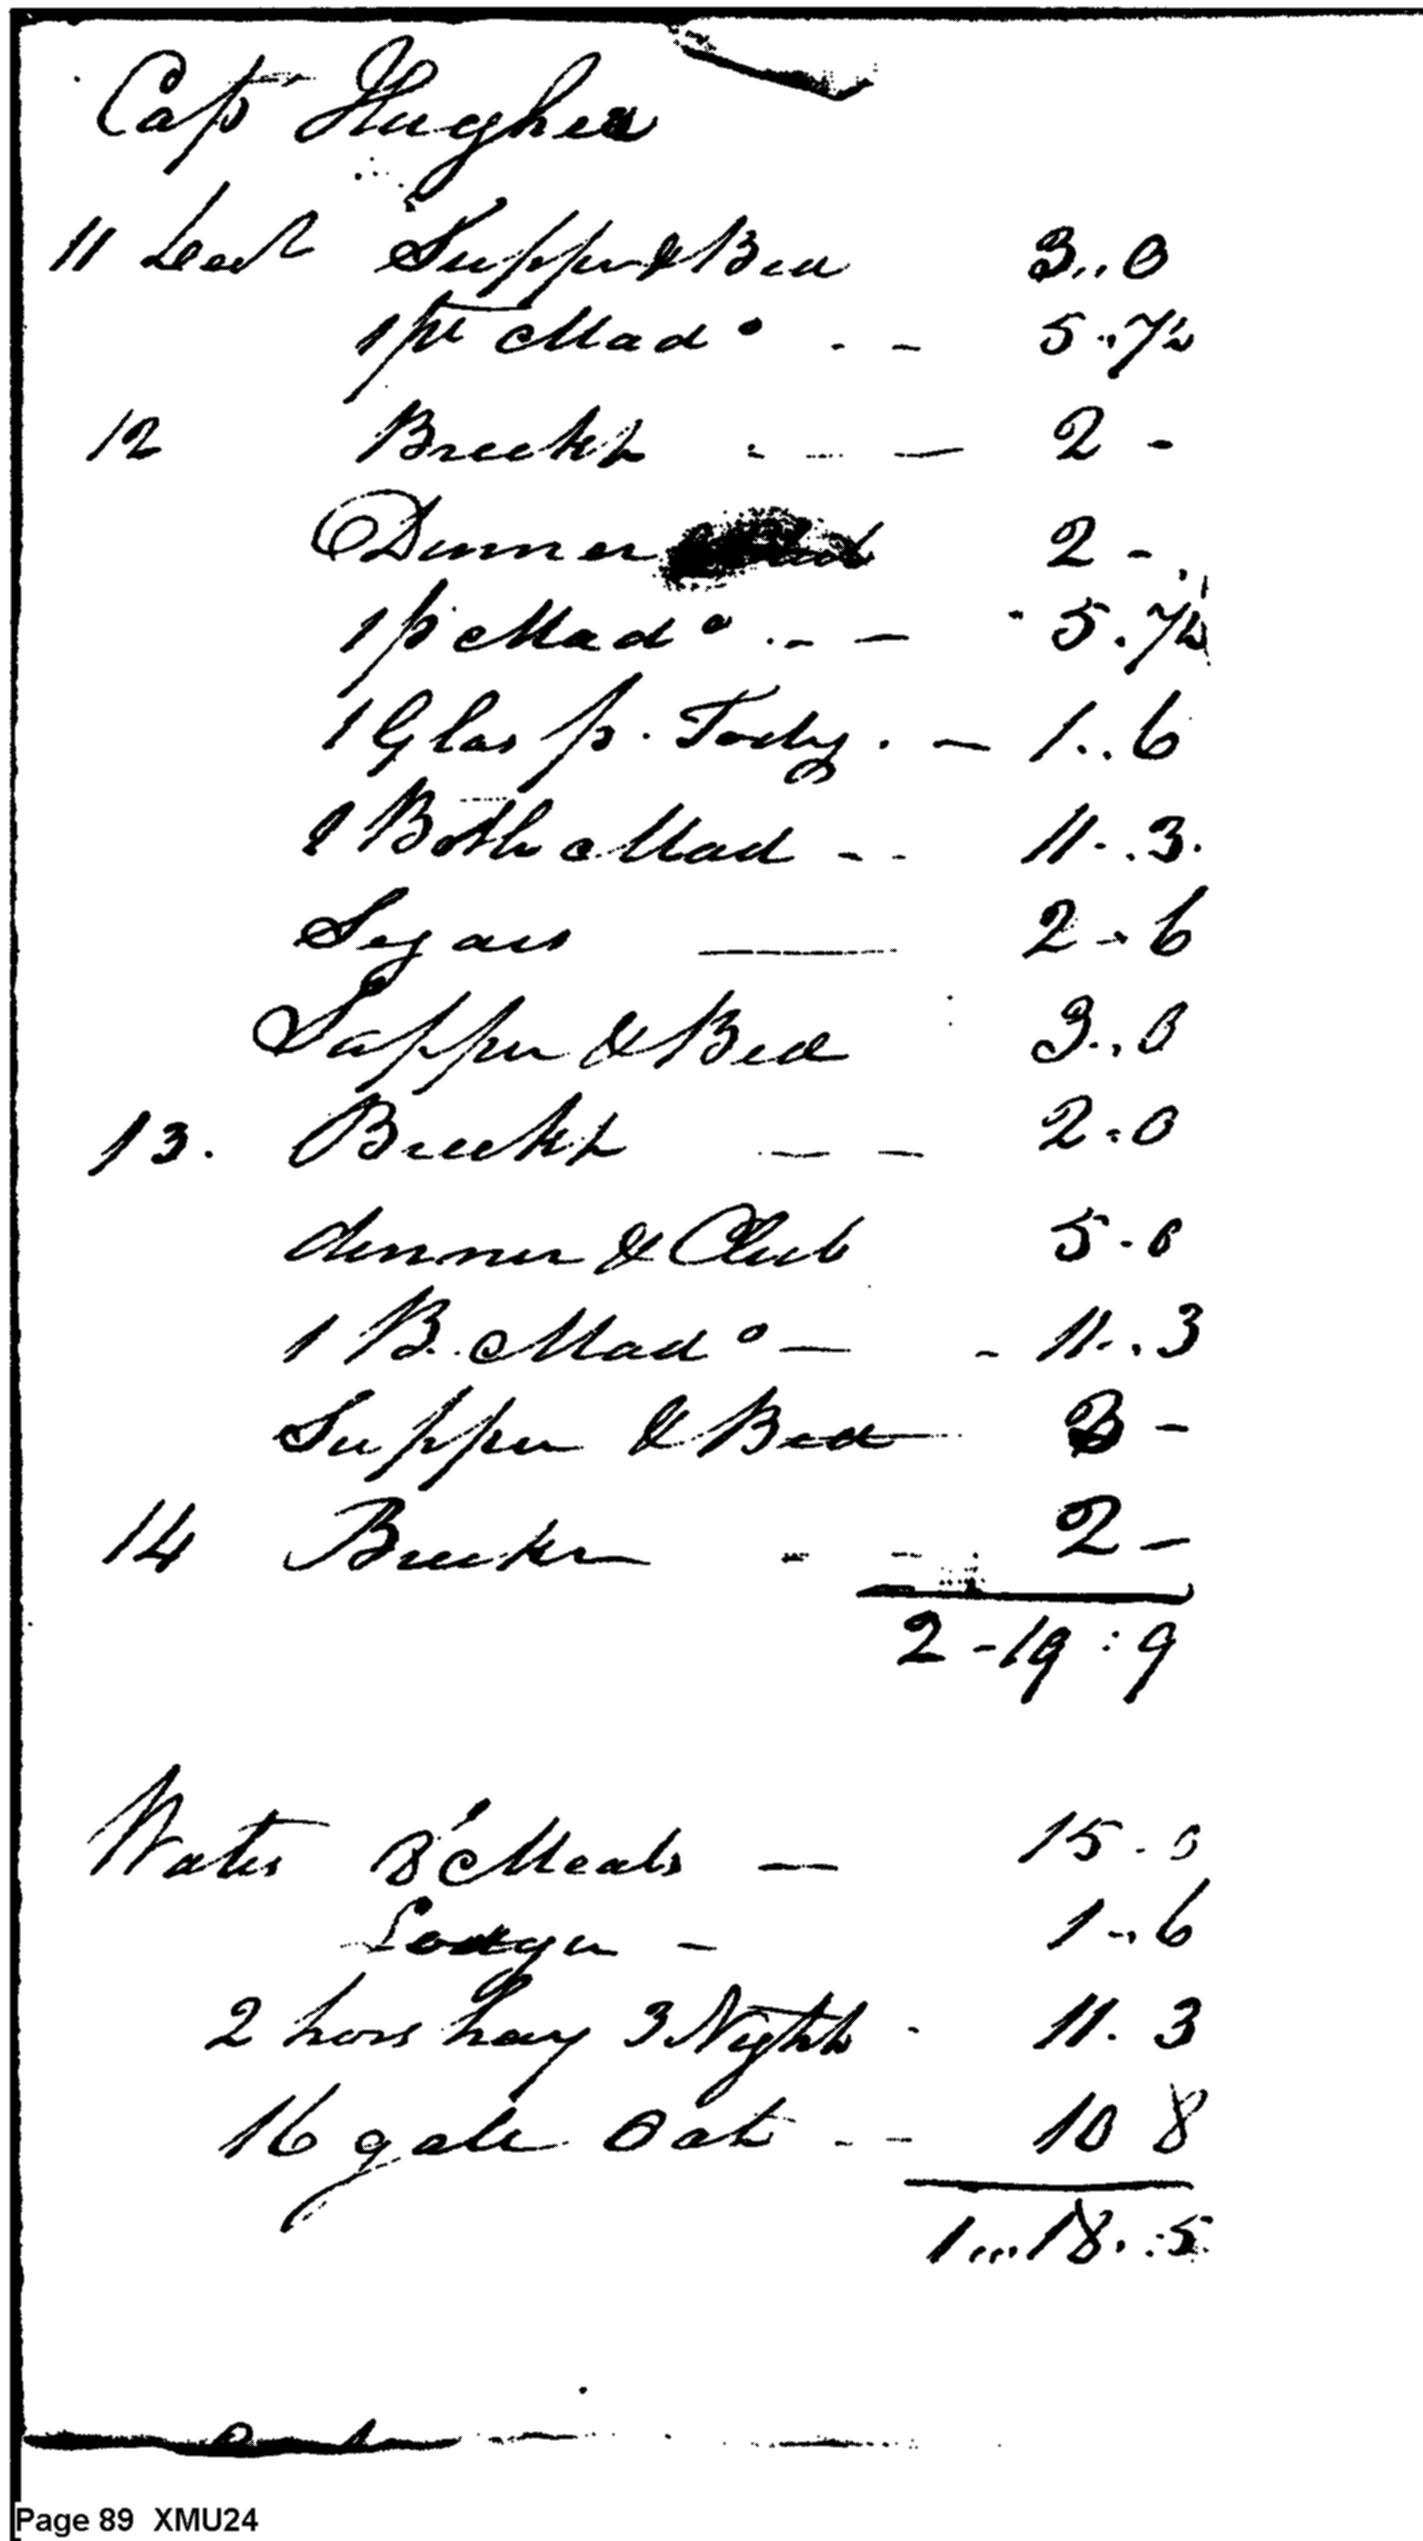 Capt Hughes
11 Sept Supper & Bed 3..0
1 pt Mado . - 5..7½
12 Breckt . - - 2 -
Dinner 2 -
1 p Mado . - - 5.7½
1 Glas p. Tody . - 1..6
1 Bottle Mad - - 11..3.
Segars — 2..6
Supper & Bed 3..0
13. Breckt - - 2.0
dinner & Club 5.0
1 B. Mado — - 11..3
Supper & Bed 3 -
14 Breckt - - 2 -
2 - 19 : 9
Waters 8 Meals — 15.0
Lodgen - 1..6
2 hors hay 3 Night - 11. 3
16 gals Oat - - 10 8
1...18..5
Page 89 XMU24